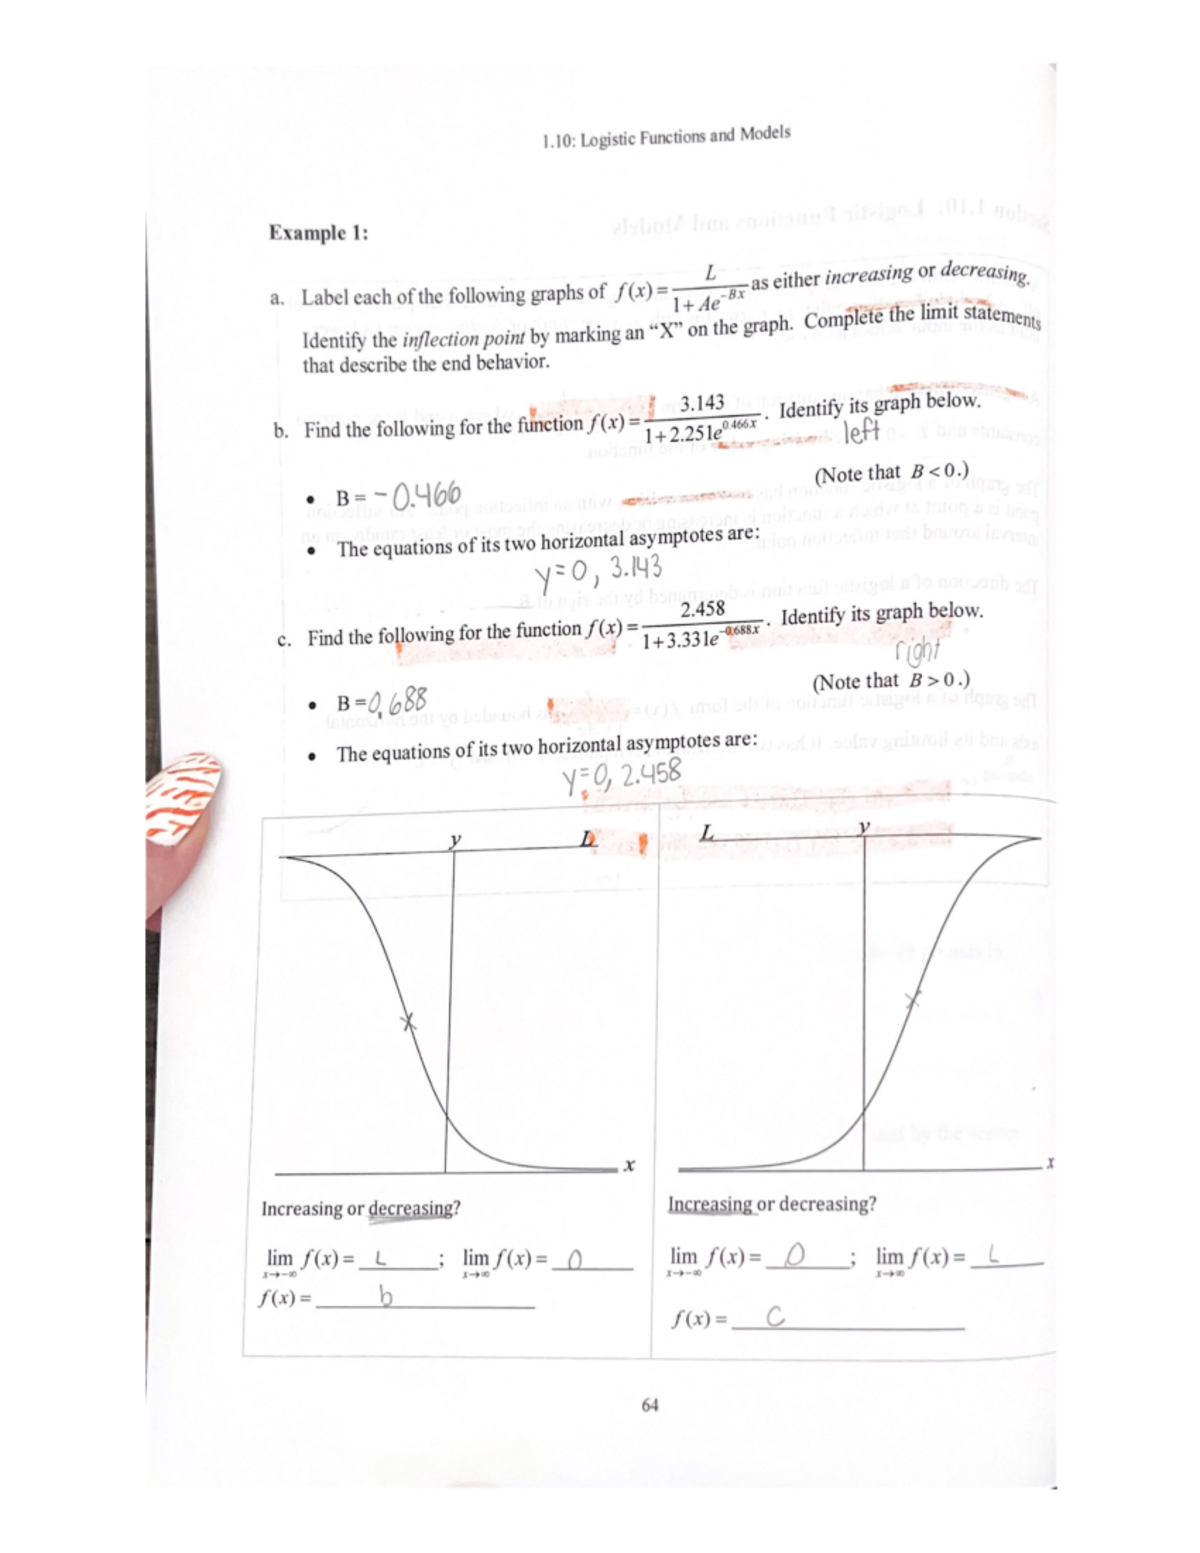 1.10: Logistic Functions and Models
Example 1:
a. Label each of the following graphs of f(x) = L / (1 + Ae^(-Bx)) as either increasing or decreasing.
Identify the inflection point by marking an "X" on the graph. Complete the limit statements
that describe the end behavior.
b. Find the following for the function f(x) = 3.143 / (1 + 2.251e^(0.466x)). Identify its graph below.
left
• B = -0.466 (Note that B < 0.)
• The equations of its two horizontal asymptotes are:
y=0, 3.143
c. Find the following for the function f(x) = 2.458 / (1 + 3.331e^(-0.688x)). Identify its graph below.
right
• B = 0.688 (Note that B > 0.)
• The equations of its two horizontal asymptotes are:
y=0, 2.458
y L
L y
X
X
x
x
Increasing or decreasing?
lim x→-∞ f(x) = L ; lim x→∞ f(x) = 0
f(x) = b
Increasing or decreasing?
lim x→-∞ f(x) = 0 ; lim x→∞ f(x) = L
f(x) = C
64